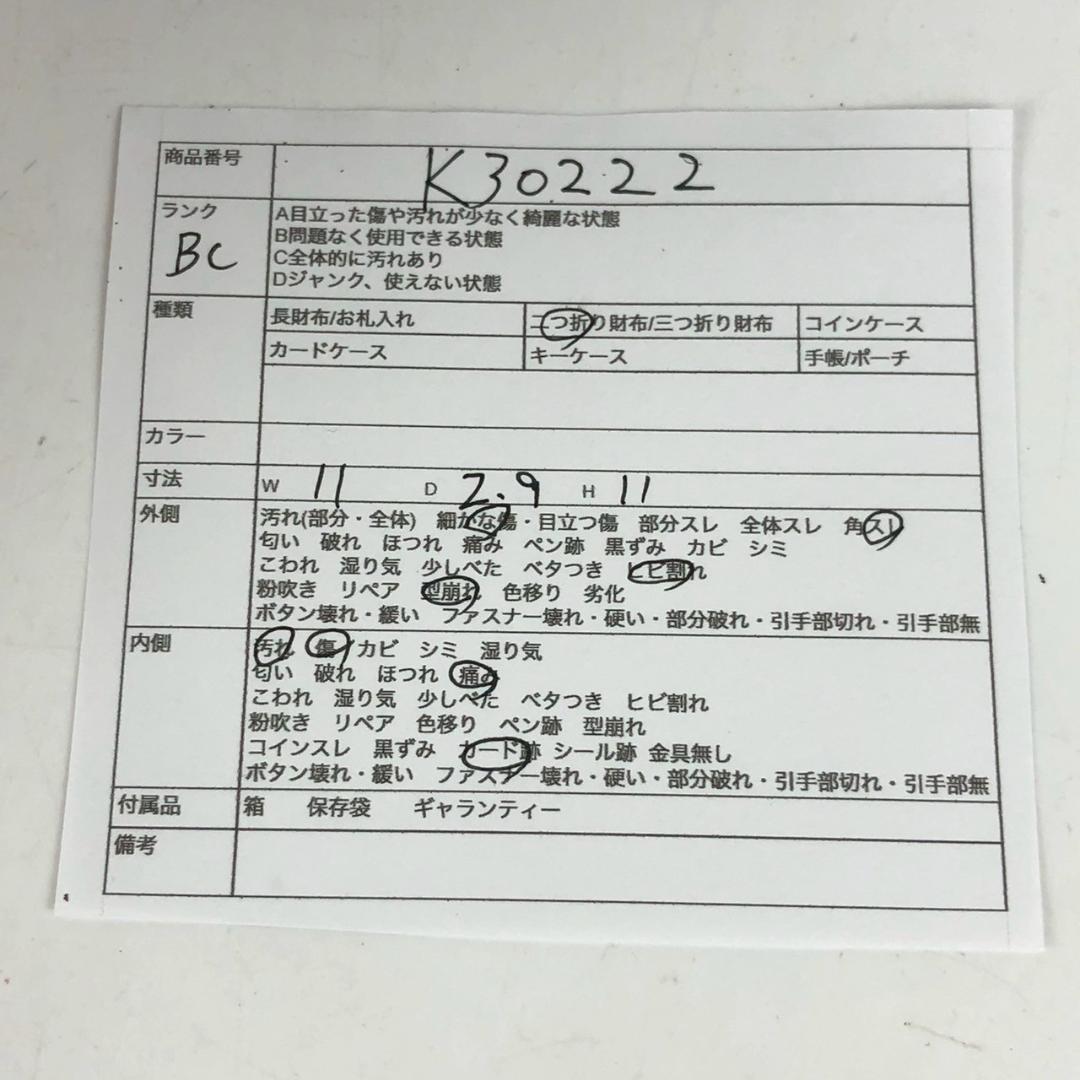 商品番号 K30222
ランク BC
A目立った傷や汚れが少なく綺麗な状態
B問題なく使用できる状態
C全体的に汚れあり
Dジャンク、使えない状態
種類 長財布/お札入れ 二つ折り財布/三つ折り財布 コインケース
カードケース キーケース 手帳/ポーチ
カラー
寸法 W 11 D 2.9 H 11
外側 汚れ(部分・全体) 細かな傷・目立つ傷 部分スレ 全体スレ 角スレ
匂い 破れ ほつれ 痛み ペン跡 黒ずみ カビ シミ
こわれ 湿り気 少しべた ベタつき ヒビ割れ
粉吹き リペア 型崩れ 色移り 劣化
ボタン壊れ・緩い ファスナー壊れ・硬い・部分破れ・引手部切れ・引手部無
内側 汚れ 傷 カビ シミ 湿り気
匂い 破れ ほつれ 痛み
こわれ 湿り気 少しべた ベタつき ヒビ割れ
粉吹き リペア 色移り ペン跡 型崩れ
コインスレ 黒ずみ カード跡 シール跡 金具無し
ボタン壊れ・緩い ファスナー壊れ・硬い・部分破れ・引手部切れ・引手部無
付属品 箱 保存袋 ギャランティー
備考